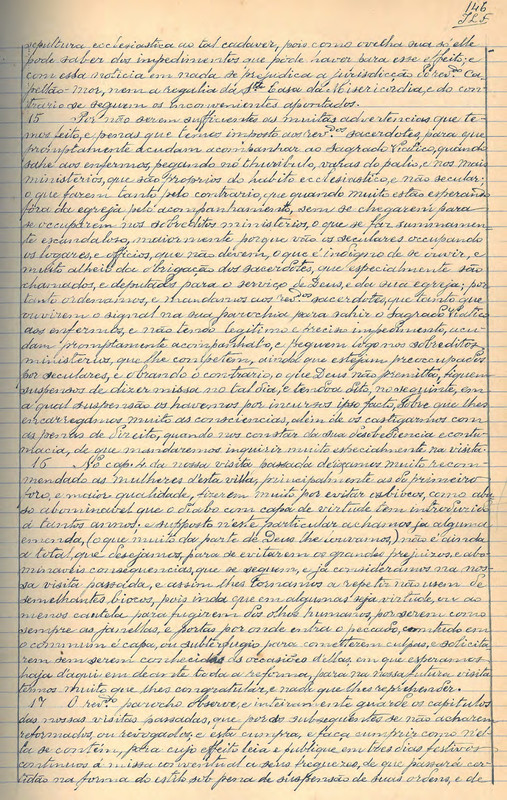 146
J.L.F.
sepultura ecclesiastica ao tal cadaver, pois como ovelha sua só elle
pode saber dos impedimentos que pode haver para esse effeito; e
com essa noticia em nada se prejudica a jurisdicção do revdo Ca-
pellão-mor, nem a regalia da Sta Casa da Misericordia, e do con-
trario se seguem os inconvenientes apontados.
15 Por não serem sufficientes as muitas advertencias que te-
mos feito, e penas que temos imposto aos revdos sacerdotes, para que
promptamente acudam a acompanhar ao Sagrado Viatico, quando
sahe aos enfermos, pegando no thuribulo, varas do palio, e nos mais
ministerios, que são proprios do habito ecclesiastico, e não secular;
o que fazem tanto pelo contrario, que quando muito estão esperando
fora da egreja pelo acompanhamento, sem se chegarem para
se occuparem nos sobreditos ministerios, o que se faz summamen-
te escandaloso, maiormente porque vão os seculares occupando
os logares, e officios, que não devem, o que é indigno de se ouvir, e
muito alheio da obrigação dos sacerdotes, que especialmente são
chamados, e deputados para o serviço de Deus, e da sua egreja; por
tanto ordenamos, e mandamos aos revdos sacerdotes, que tanto que
ouvirem o signal na sua parochia para sahir o Sagrado Viatico
aos enfermos, e não tendo legitimo e preciso impedimento, acu-
dam promptamente acompanhal-o, e peguem logo nos sobreditos
ministerios, que lhe competem, ainda que estejam preoccupados
por seculares, e obrando o contrario, o que Deus não permitta, fiquem
suspensos de dizer missa no tal dia, e tendo-a dito, no seguinte, em
a qual suspensão os havemos por incursos ipso facto, sobre que lhes
encarregamos muito as consciencias, além de os castigarmos com
as penas de direito, quando nos constar da sua desobediencia e contu-
macia, de que mandaremos inquirir muito especialmente na visita.
16 No cap. 4 da nossa visita passada deixamos muito recom-
mendado as mulheres d'esta villa, principalmente as de primeiro
foro, e maior qualidade, fizerem muito por evitar os biocos, como abu-
so abominavel que o diabo com capa de virtude tem introduzido
á tantos annos, e supposto n'este particular achamos já alguma
emenda, (o que muito da parte de Deus lhe louvamos,) não é ainda
a total, que desejamos, para se evitarem os grandes prejuizos, e abo-
minaveis consequencias, que se seguem, e já consideramos na nos-
sa visita passada, e assim lhes tornamos a repetir não usem de
semelhantes biocos, pois inda que em algumas seja virtude, ou ao
menos cautela para fugirem dos olhos humanos, por serem como
sempre as janellas, e porta por onde entra o peccado, comtudo em
o commum é capa, ou subterfugio para cometterem culpas, e solicita-
rem sem serem conhecidas as occasiões d'ellas, em que esperamos
haja d'aqui em deante toda a reforma, para na nossa futura visita
termos muito que lhes congratular, e nada que lhes reprehender.
17 O revdo parocho observe, e inteiramente guarde os capitulos
das nossas visitas passadas, que por do subsequentes se não acharem
reformados, ou revogados, e está cumpra, e faça cumprir como n'el-
la se contém, para cujo effeito leia e publique em tres dias festivos
continuos á missa conventual a seus freguezes, de que passará cer-
tidão na forma do estilo sob pena de suspensão de suas ordens, e de